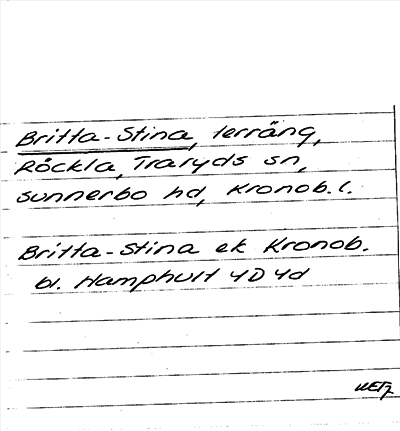 Britta-Stina, terräng,
Röckla, Traryds sn,
Sunnerbo hd, Kronob. l.
Britta-Stina ek Kronob.
bl. Hamphult 4D 4d